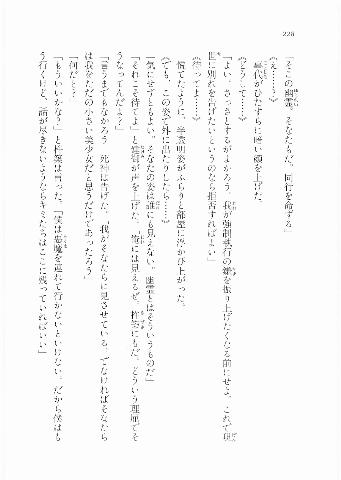 228
「そこの幽霊。そなたもだ。同行を命ずる」
《え……？》
　喜代がひたすらに暗い顔を上げた。
《どうして……》
「よい、さっさとするがよかろう。我が強制執行の鎌を振り上げたくなる前にせよ。これで現
世に別れを告げたいというのなら拒否すればよい」
《待ってよ……》
　慌てたように、学業明姿がふらりと部屋に浮かび上がった。
《でも、この姿で外に出たりしたら……》
「気にせずともよい。そなたの姿は誰にも見えない。幽霊とはそういうものだ」
「それこそ待てよ」と が声を上げた。「俺には見えるぜ。 にもだ。どういう理屈でそ
うなってんだよ？」
「言うまでもなかろう」死神は告げた。「我がそなたらに見させている。でなければそなたら
は我をただの小さい美少女だと思うだけであったろう」
「何だと？」
「もういいかな？」と は言った。「僕は悪魔を連れて行かないといけない。だから僕はも
う行くけど、話が尽きないようならキミたちはここに残っていればいい」